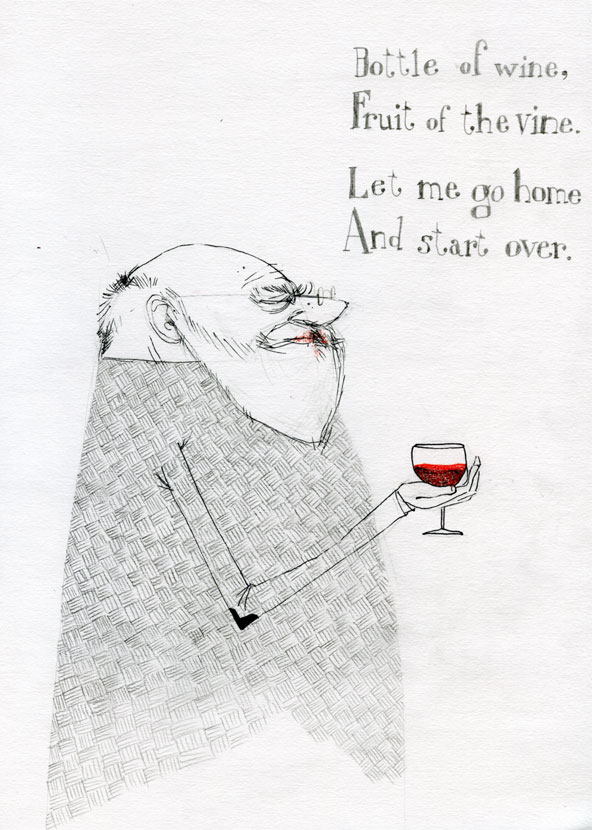 Bottle of wine,
Fruit of the vine.
Let me go home
And start over.